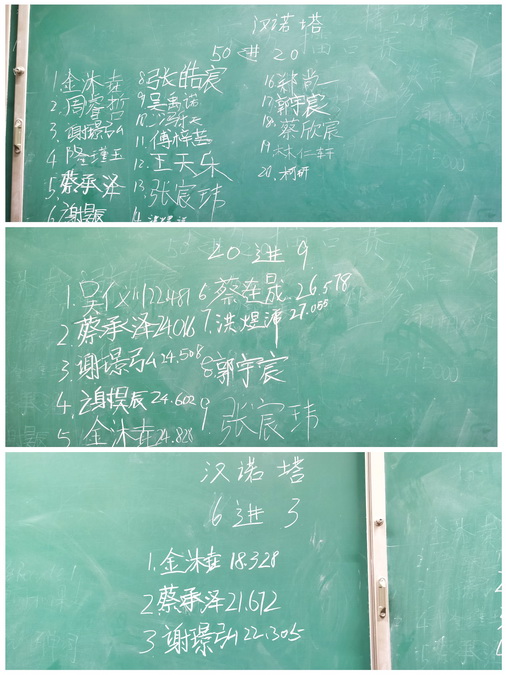 汉诺塔
50进20
1.金沐垚
2.周睿哲
3.谢璟弘
4.隆瑾玉
5.蔡承泽
6.谢昊辰
8.张皓宸
9.吴禹诺
10.
11.傅梓芸
12.王天乐
13.张宸玮
16.郑尚一
17.郭宇宸
18.蔡欣宸
19.林仁轩
20.柯妍
20进9
1.吴仪川22.481
2.蔡承泽24.016
3.谢璟弘24.508
4.谢昊辰24.602
5.金沐垚24.828
6蔡在晟.26.578
7.洪煜沛27.055
8郭宇宸
9张宸玮
汉诺塔
6进3
1.金沐垚18.328
2蔡承泽21.672
3谢璟弘22.305